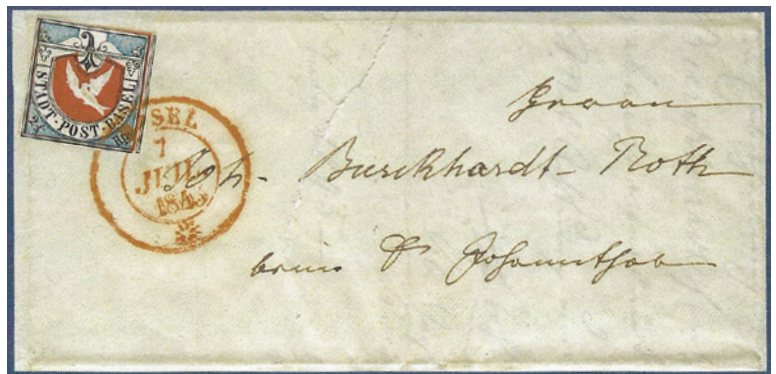 STADT·POST·BASEL
2½ Rp.
BASEL
7
JUIL
184
Herrn
Joh. Burckhardt-Roth
beim St Johannthor